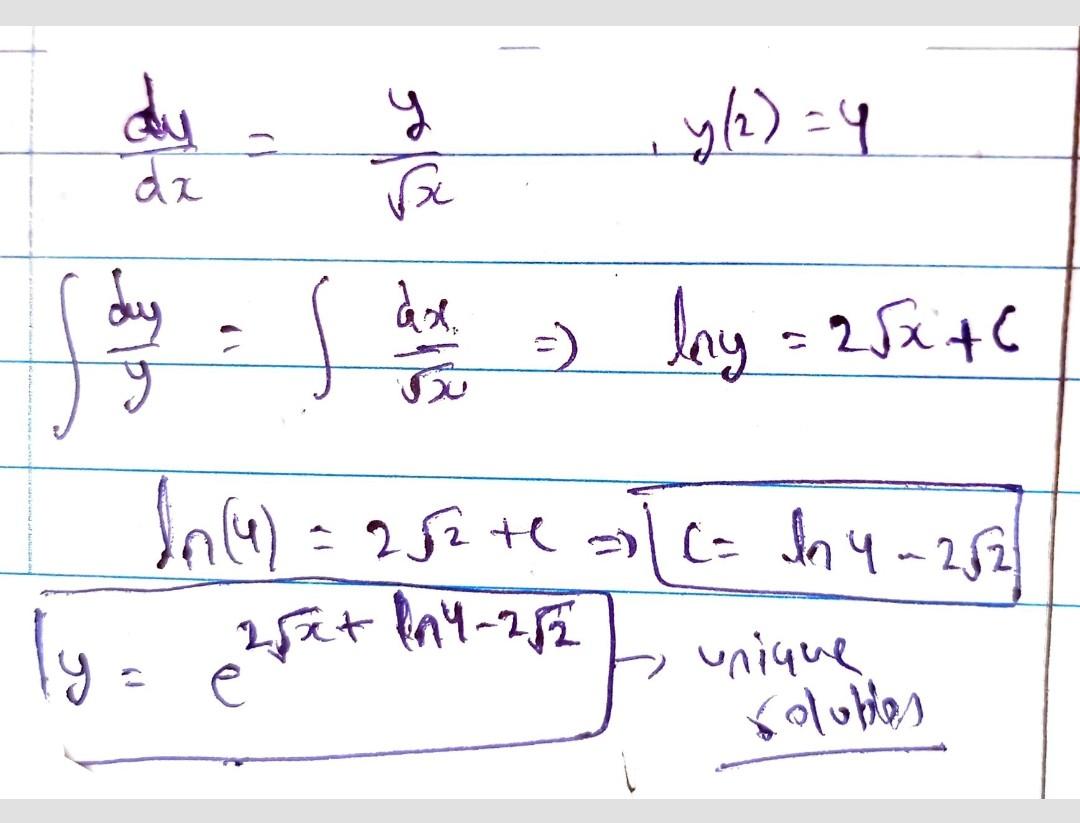 dy/dx = y/√x , y(2) = 4
∫ dy/y = ∫ dx/√x ⇒ ln y = 2√x + C
ln(4) = 2√2 + C ⇒ C = ln 4 - 2√2
y = e^(2√x + ln 4 - 2√2) → unique